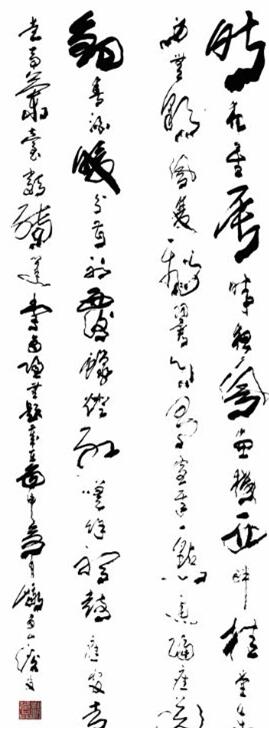 昨夜星辰昨夜風畫樓西畔桂堂東
身無彩鳳雙飛翼心有靈犀一點通隔座送
鉤春酒暖分曹射覆蠟燈紅嗟余聽鼓應官去
走馬蘭臺類轉蓬李商隱無題